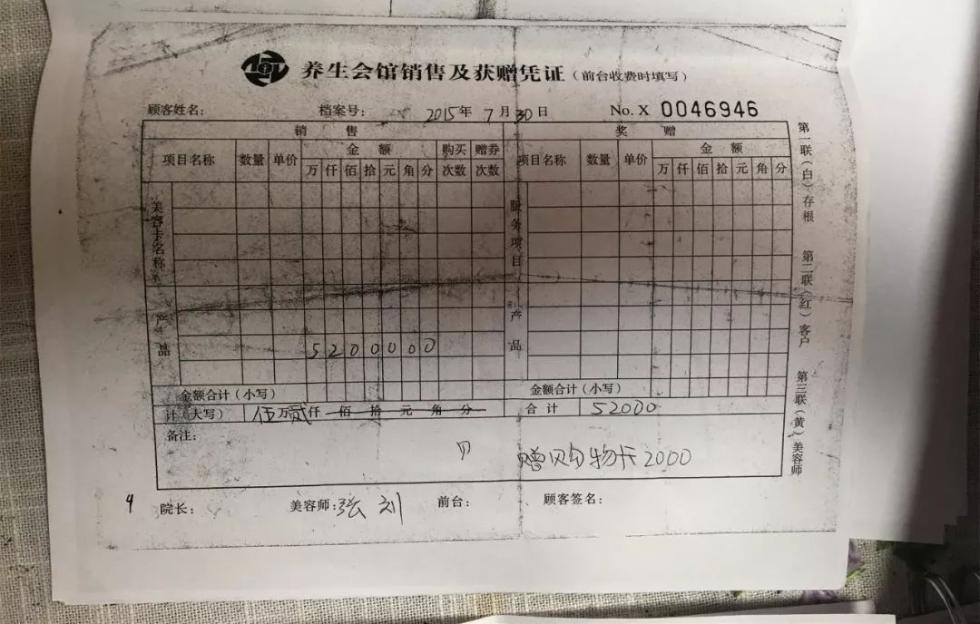 养生会馆销售及获赠凭证（前台收费时填写）
顾客姓名： 档案号： 2015年 7月30日 No. X 0046946
销 售 奖 赠
项目名称 数量 单价 金 额 购买次数 赠券次数 项目名称 数量 单价 金 额
万 仟 佰 拾 元 角 分 万 仟 佰 拾 元 角 分
美容卡名称 服务项目
产品 产品
5 2 0 0 0 0 0
金额合计（小写） 金额合计（小写）
计（大写） 伍万贰仟 佰 拾 元 角 分 合 计 52000
备注：
赠购物卡2000
4 院长： 美容师：张 刘 前台： 顾客签名：
第一联（白）存根 第二联（红）客户 第三联（黄）美容师